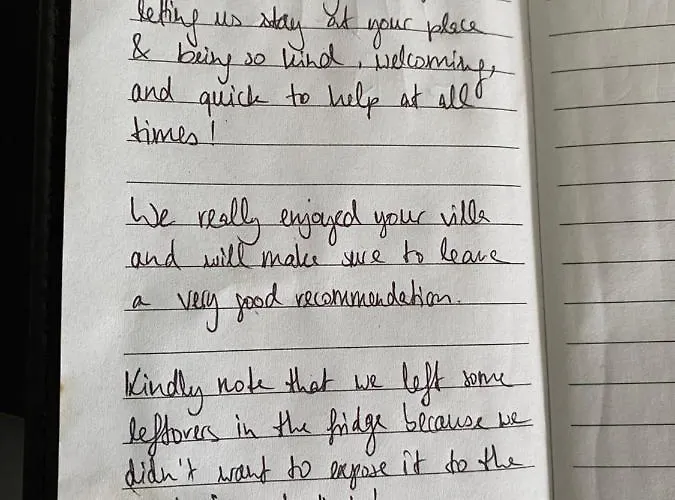 letting us stay at your place
& being so kind, welcoming,
and quick to help at all
times!
We really enjoyed your villa
and will make sure to leave
a very good recommendation.
Kindly note that we left some
leftovers in the fridge because we
didn't want to expose it to the